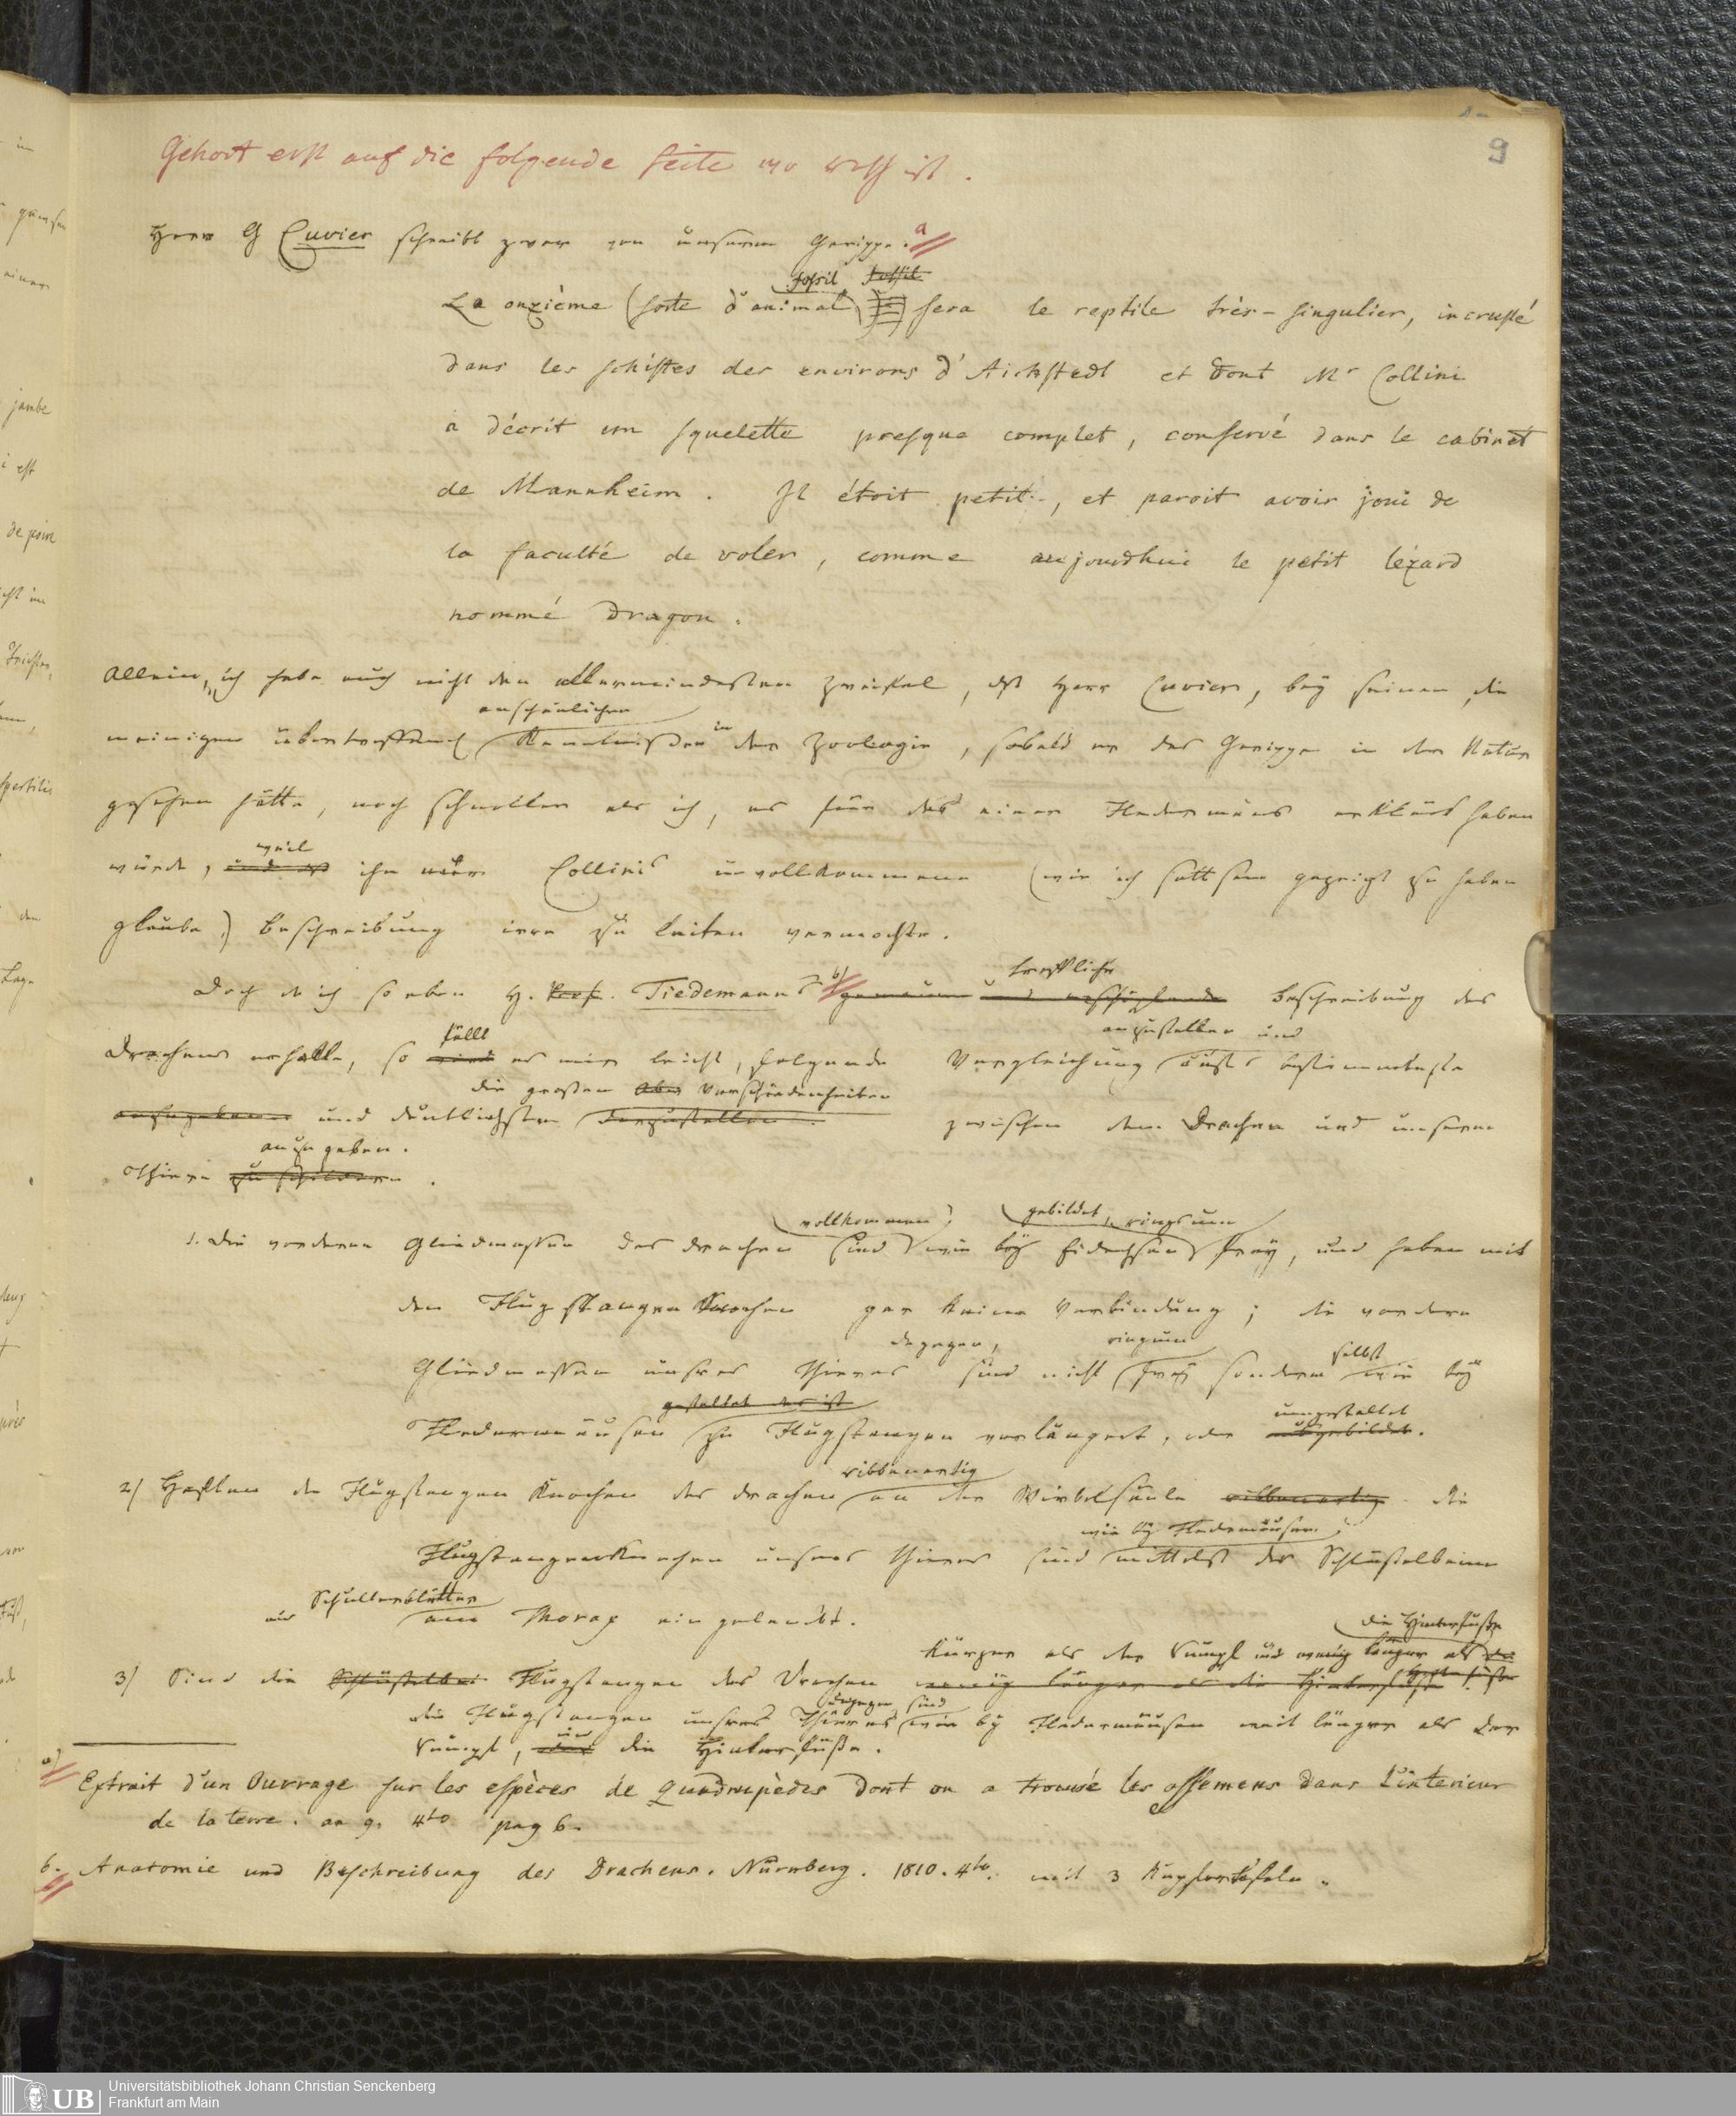 9
Gehört erst auf die folgende Seite wo ist.
Herr G Cuvier schreibt zwar von unserem Gerippe. a
fossil fossil
La onzième (sorte d'animal) sera le reptile très-singulier, incrusté
dans les schistes des environs d'Aichstedt et dont Mr Collini
a décrit un squelette presque complet, conservé dans le cabinet
de Mannheim. Il étoit petit, et paroit avoir joui de
la faculté de voler, comme aujourdhui le petit lézard
nommé Dragon.
Allein, ich habe auch nicht den allermindesten Zweifel, dß Herr Cuvier, bey seinen, die
ansehnlichen
meinigen übertreffend Kenntnißen in der Zoologie, sobald er das Gerippe in der Natur
gesehen hätte, noch schneller als ich, es für das einer Fledermaus erklärt haben
weil
würde, und es ihn nur Collini's unvollkommene (wie ich sattsam gezeigt zu haben
glaube) Beschreibung irre zu leiten vermochte.
treffliche
Da ich so eben H. Prof. Tiedemann's b) genaue und erschöpfende Beschreibung des
anzustellen und
fällt
Drachens erhalte, so wird es mir leicht, folgende Vergleichung aufs bestimmteste
die großen Verschiedenheiten
anzugeben und deutlichsten darzustellen. zwischen dem Drachen und unserm
anzugeben.
Thiere zu schildern.
vollkommen gebildet, ringsum
1. Die vordern Gliedmassen des Drachen sind wie bey Eidechsen frey, und haben mit
den Flugstangen Knochen gar keine Verbindung; die vordern
dagegen, ringsum selbst
Gliedmassen unsres Thieres sind nicht frey sondern wie bey
gestaltet das ist umgestaltet
Fledermäusen zu Flugstangen verlängert, oder ausgebildet.
ribbenartig
2) Haften die Flugstangen Knochen des Drachen an der Wirbelsäule ribbenartig. die
wie bey Fledermäusen
Flugstangenknochen unsres Thieres sind mittelst der Schlüßelbeine
und Schulterblätter am Thorax eingelenkt.
die Hinterfüße
kürzer als der Rumpf und wenig länger als die
3) Sind die Schlüßelbei Flugstangen des Drachen wenig länger als die Hinterfüße
dagegen sind
die Flugstangen unsres Thieres wie bey Fledermäusen weit länger als der
und
Rumpf, oder die Hinterfüße.
a) Extrait d'un Ouvrage sur les espèces de Quadrupèdes dont on a trouvé les ossemens dans l'intérieur
de la terre. an 9. 4to pag 6.
b. Anatomie und Beschreibung des Drachens. Nürnberg. 1810. 4to. mit 3 Kupfertafeln.
UB
Universitätsbibliothek Johann Christian Senckenberg
Frankfurt am Main